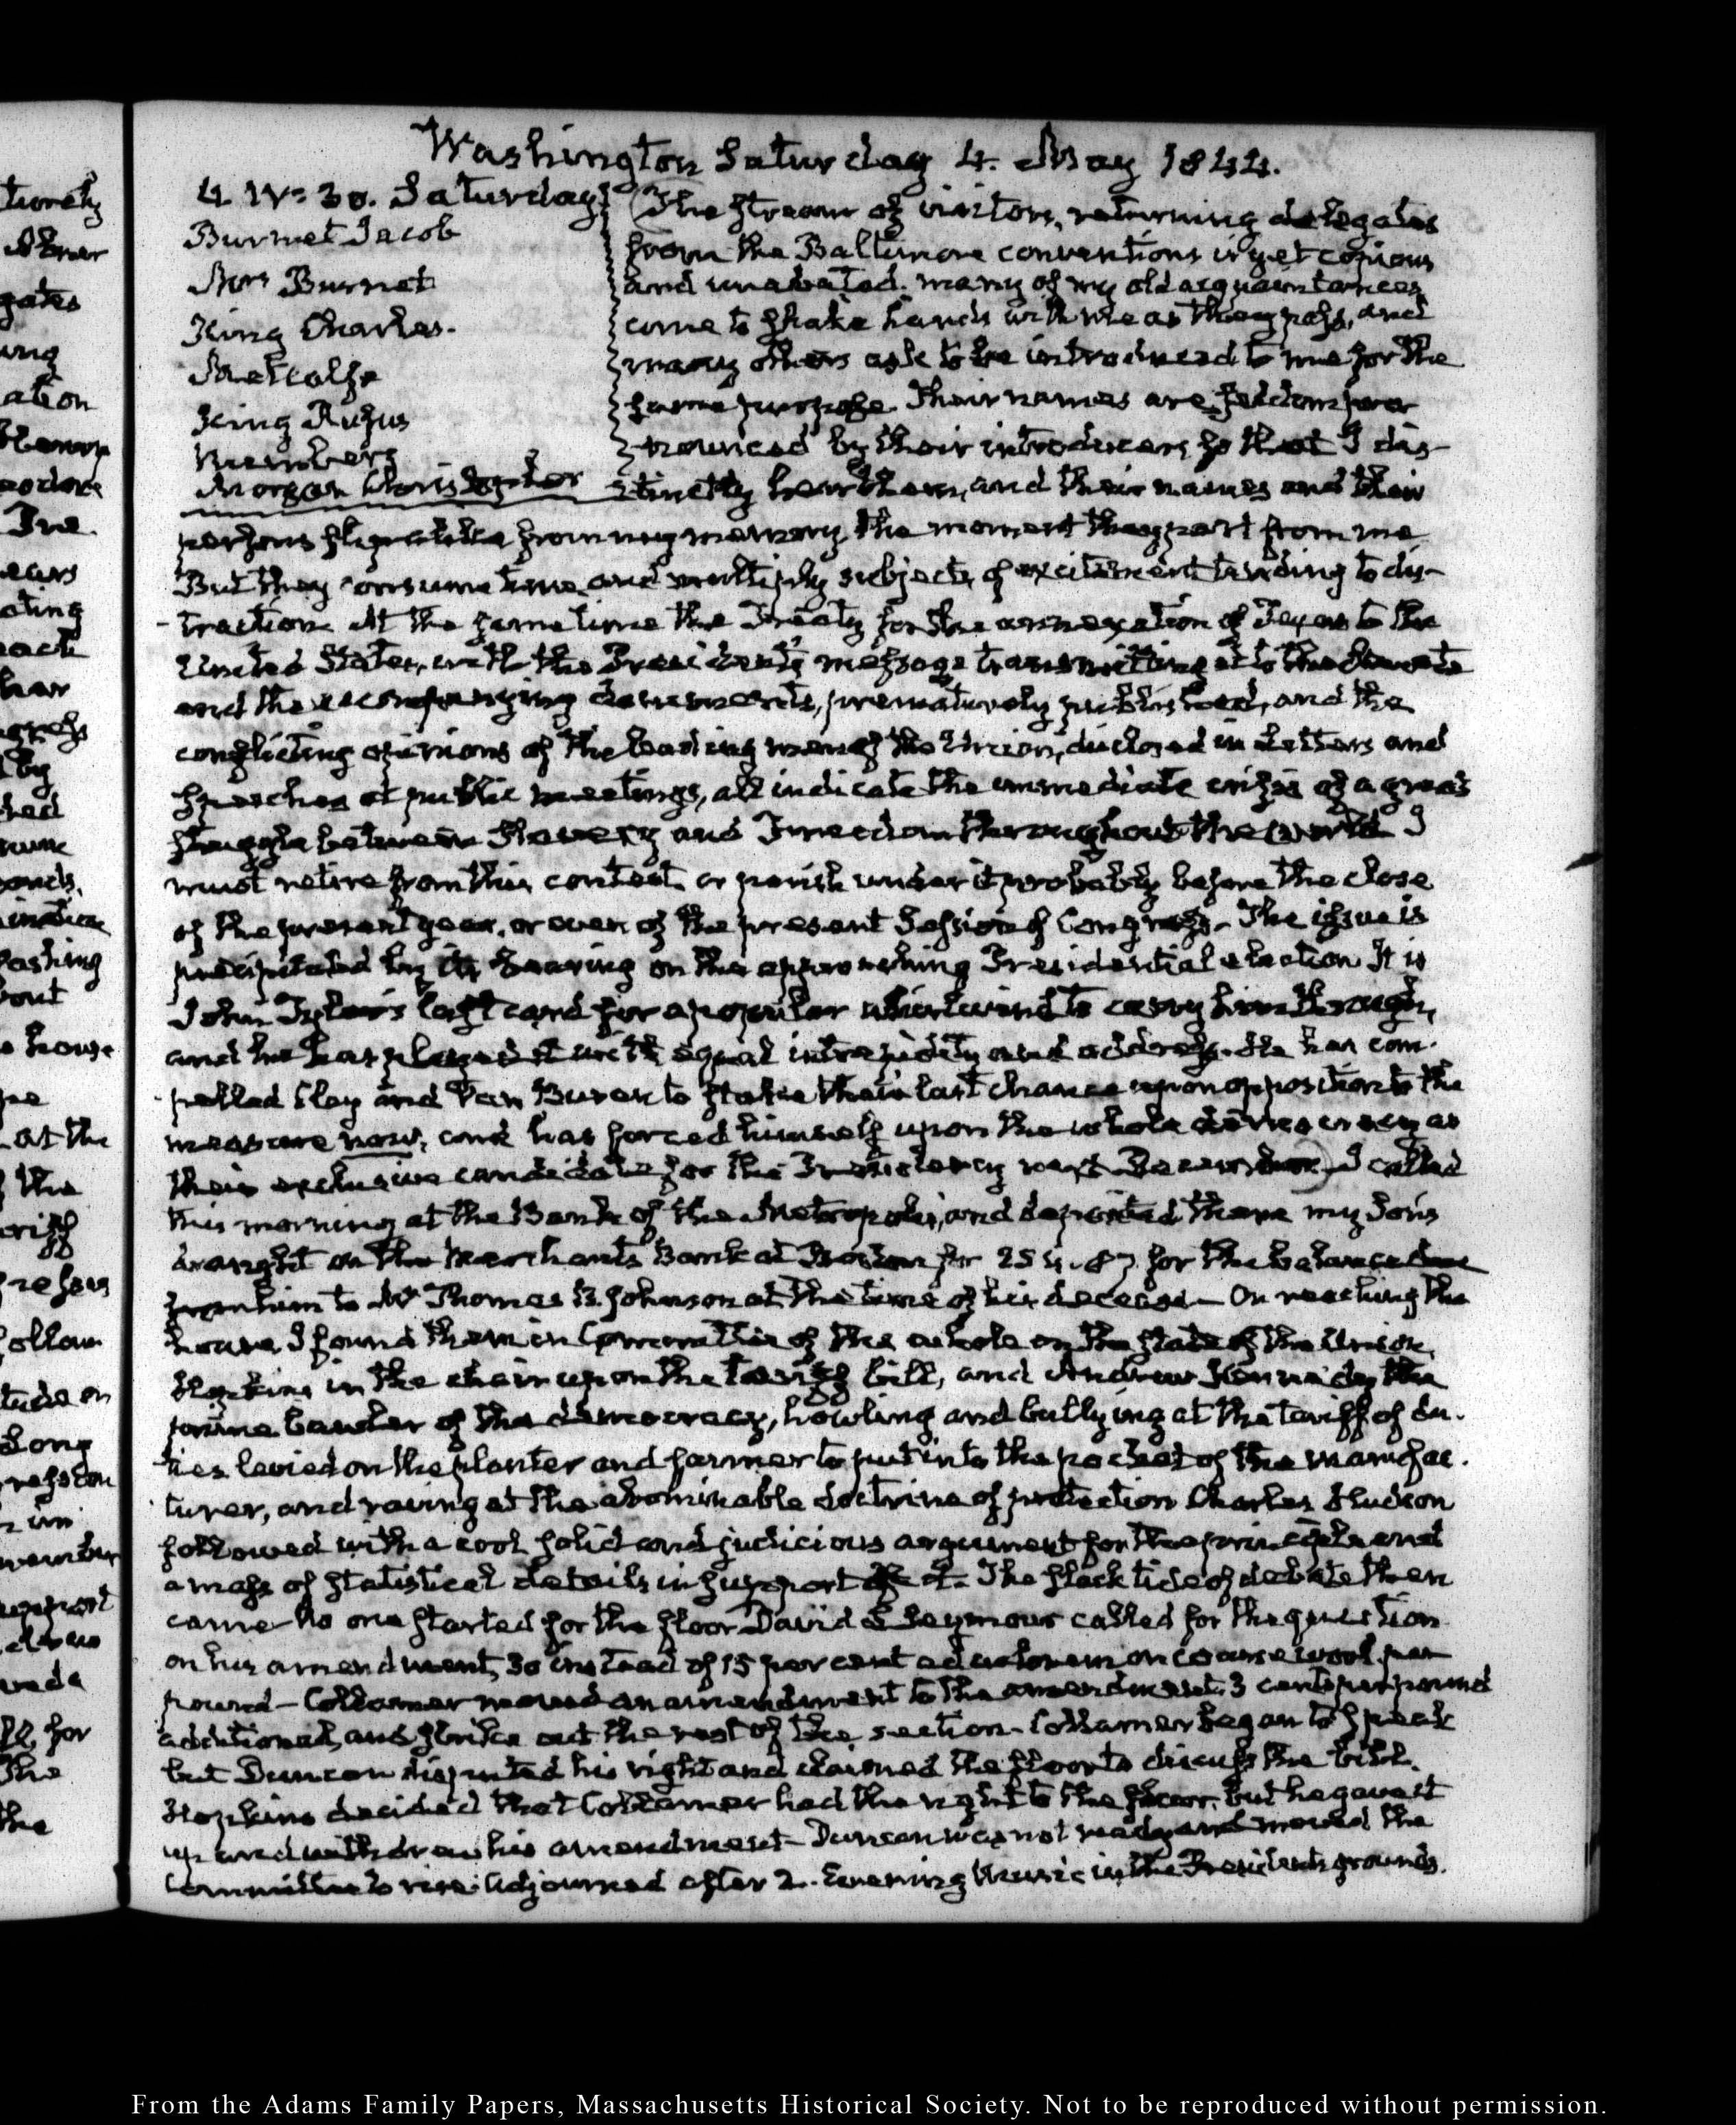 Washington Saturday 4. May 1844.
4. IV: 30. Saturday
Burnet Jacob
Mrs Burnet
King Charles.
Metcalfe
King Rufus
Morgan Christopher
The stream of visitors, returning delegates
from the Baltimore conventions is yet copious
and unabated. many of my old acquaintances
come to shake hands with me as they pass, and
many others ask to be introduced to me for the
same purpose. Their names are seldom pro
nounced by their introducers so that I dis-
tinctly hear them, and their names and their
persons slip from my memory the moment they part from me
But they consume time and multiply subjects of excitement tending to dis-
-traction. At the same time the Treaty for the annexation of Texas to the
United States, with the President's message transmitting it to the Senate
and the accompanying documents, prematurely published, and the
conflicting opinions of the leading men of the Union, disclosed in letters and
speeches at public meetings, all indicate the immediate crisis of a great
struggle between Slavery and Freedom throughout the world. I
must retire from this contest, or perish under it probably before the close
of the present year, or even of the present Session of Congress- The issue is
precipitated by its bearing on the approaching Presidential election. It is
John Tyler's last card for a popular whirlwind to carry him through,
and he has played it with equal intrepidity and address. He has com-
-pelled Clay and Van Buren to stake their last chance upon opposition to the
measure now, and has forced himself upon the whole democracy as
their exclusive candidate for the Presidency next December) I called
this morning at the Bank of the Metropolis, and deposited there my Son's
draught on the Merchants Bank at Boston for 254.87 for the balance due
from him to Mr Thomas B. Johnson at the time of his decease- On reaching the
house, I found them in Committee of the whole on the state of the Union,
Hopkins in the chair upon the tariff bill, and Andrew Kennedy the
bawler of the democracy, howling and bullying at the tariff of du-
-ties levied on the planter and farmer to put into the pocket of the manufac-
turer, and raving at the abominable doctrine of protection Charles Hudson
followed with a cool solid and judicious argument for the principle and
a mass of statistical details in support of it. The slack tide of debate then
came No one started for the floor David L Seymour called for the question
on his amendment, 30 instead of 15 per cent ad valorem on coarse wool per
pound- Collamer moved an amendment to the amendment. 3 cents per pound
additional, and strike out the rest of the section- Collamer began to speak
but Duncan disputed his right and claimed the floor to discuss the bill.
Hopkins decided that Collamer had the right to the floor. but he gave it
up and withdrew his amendment- Duncan was not ready and moved the
Committee to rise. Adjourned after 2. Evening Music in the President's grounds.
From the Adams Family Papers, Massachusetts Historical Society. Not to be reproduced without permission.